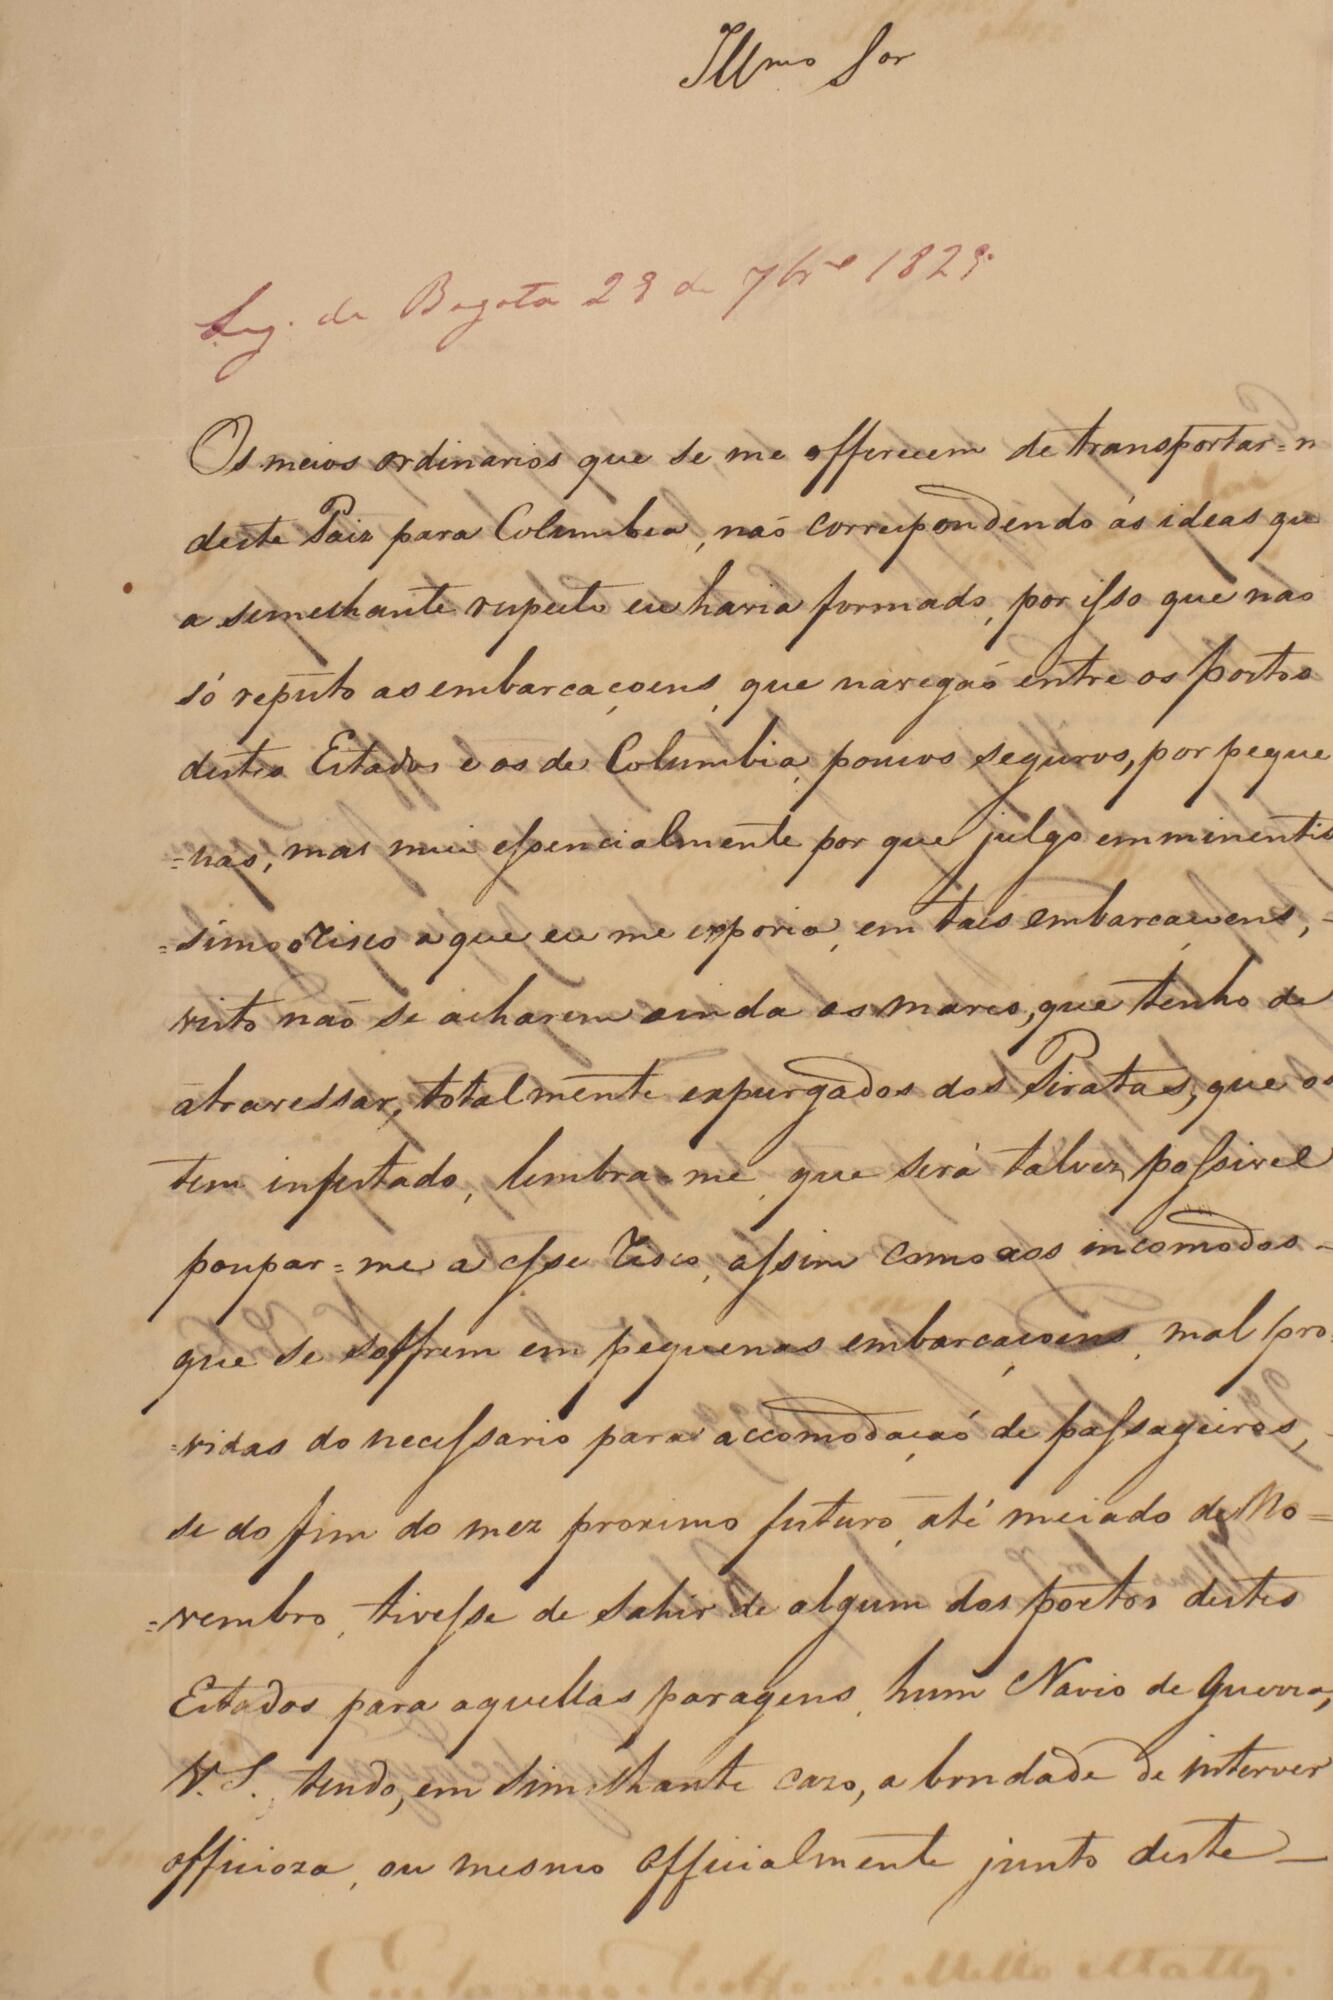 Illmo Sor
Leg. de Bogota 29 de 7bre 1829
Os meios ordinarios que se me offerecem de transportar=
deste Paiz para Columbia, não correspondendo ás ideas que
a semelhante respeito eu havia formado, por isso que não
só reputo as embarcaçoens, que navegão entre os portos
destes Estados e os de Columbia, poucos seguros, por peque
=nas, mas mui essencialmente por que julgo emminentis
=simo o risco a que eu me exporia, em taes embarcaçoens,
visto não se acharem ainda os mares, que tenho de
atravessar, totalmente expurgados dos Piratas, que os
tem infestado, lembra-me, que será talvez possivel
poupar=me a esse risco, assim como aos incomodos
que se soffrem em pequenas embarcaçoens, mal pro
=vidas do necessario para accomodação de passageiros,
se do fim do mez proximo futuro, até meiado de No=
=vembro, tivesse de sahir de algum dos portos destes
Estados para aquellas paragens, hum Navio de Guerra,
V. S., tendo, em similhante cazo, a bondade de intervir
officioza, ou mesmo officialmente junto deste